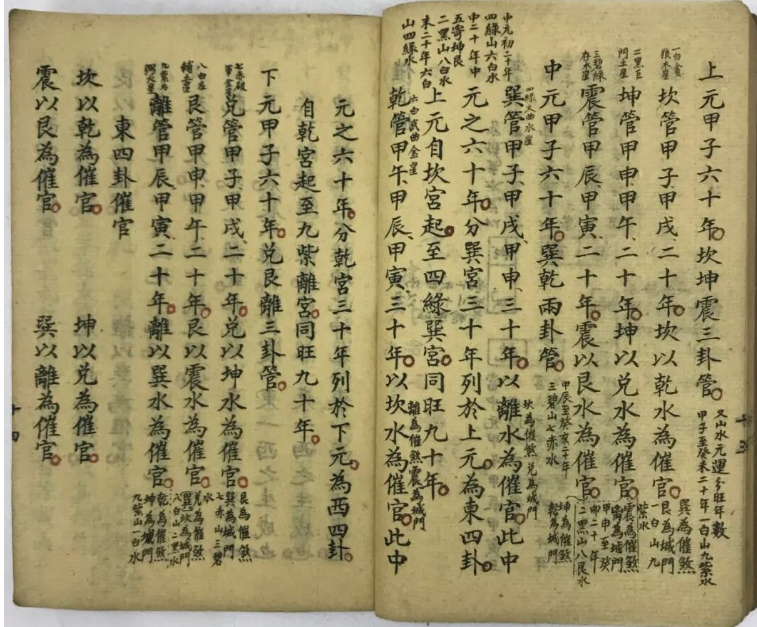 上元甲子六十年坎坤震三卦管
又山水元運分旺年數
甲子至癸未二十年一白山九紫水
一白貪
狼木星
坎管甲子甲戌二十年坎以乾水為催官
巽為催煞
艮為城門
一白山九
紫水
二黑巨
門土星
坤管甲申甲午二十年坤以兌水為催官
震為催煞
甲申至癸
三碧綠
存星
震管甲辰甲寅二十年震以艮水為催官
坤為催煞
乾為城門
二黑山八艮水
中元甲子六十年巽乾兩卦管
甲辰至癸亥二十年
三碧山七赤水
四綠文曲水星
中元初二十年
四綠山六白水
巽管甲子甲戌甲申三十年以離水為催官此中
坎為催煞兌為城門
中二十年中
五寄坤艮
二黑山八白水
元之六十年分巽宮三十年列於上元為東四卦
末二十年六白
山四綠水
上元自坎宮起至四綠巽宮同旺九十年
六白武曲金星
乾管甲午甲辰甲寅三十年以坎水為催官此中
離為催煞震為城門
元之六十年分乾宮三十年列於下元為西四卦
自乾宮起至九紫離宮同旺九十年
下元甲子六十年兌艮離三卦管
七赤破
軍金星
兌管甲子甲戌二十年兌以坤水為催官
艮為催煞
巽為城門
七赤山三碧
水
八白左
輔土星
艮管甲申甲午二十年艮以震水為催官
兌為催煞
坎為城門
八白山二黑水
九紫右
弼火星
離管甲辰甲寅二十年離以巽水為催官
乾為催煞
坤為城門
九紫山一白水
東四卦催官
坎以乾為催官
坤以兌為催官
震以艮為催官
巽以離為催官
十四